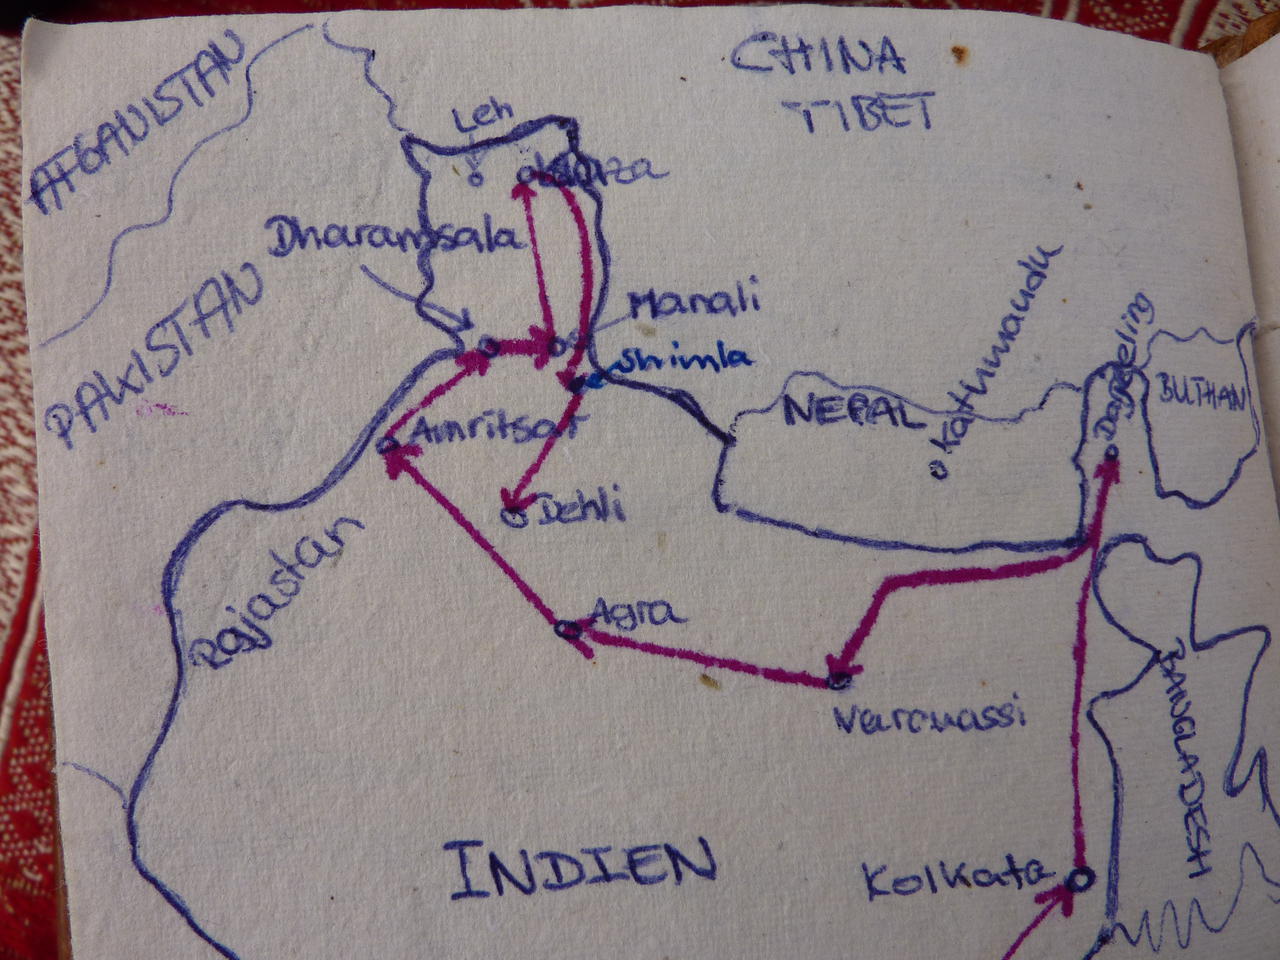 AFGANISTAN
CHINA
TIBET
Leh
Dharamsala
PAKISTAN
Manali
Shimla
Katmandu
Darjeeling
BUTHAN
NEPAL
Amritsar
Dehli
Rajastan
Agra
Varanassi
BANGLADESH
INDIEN
Kolkata